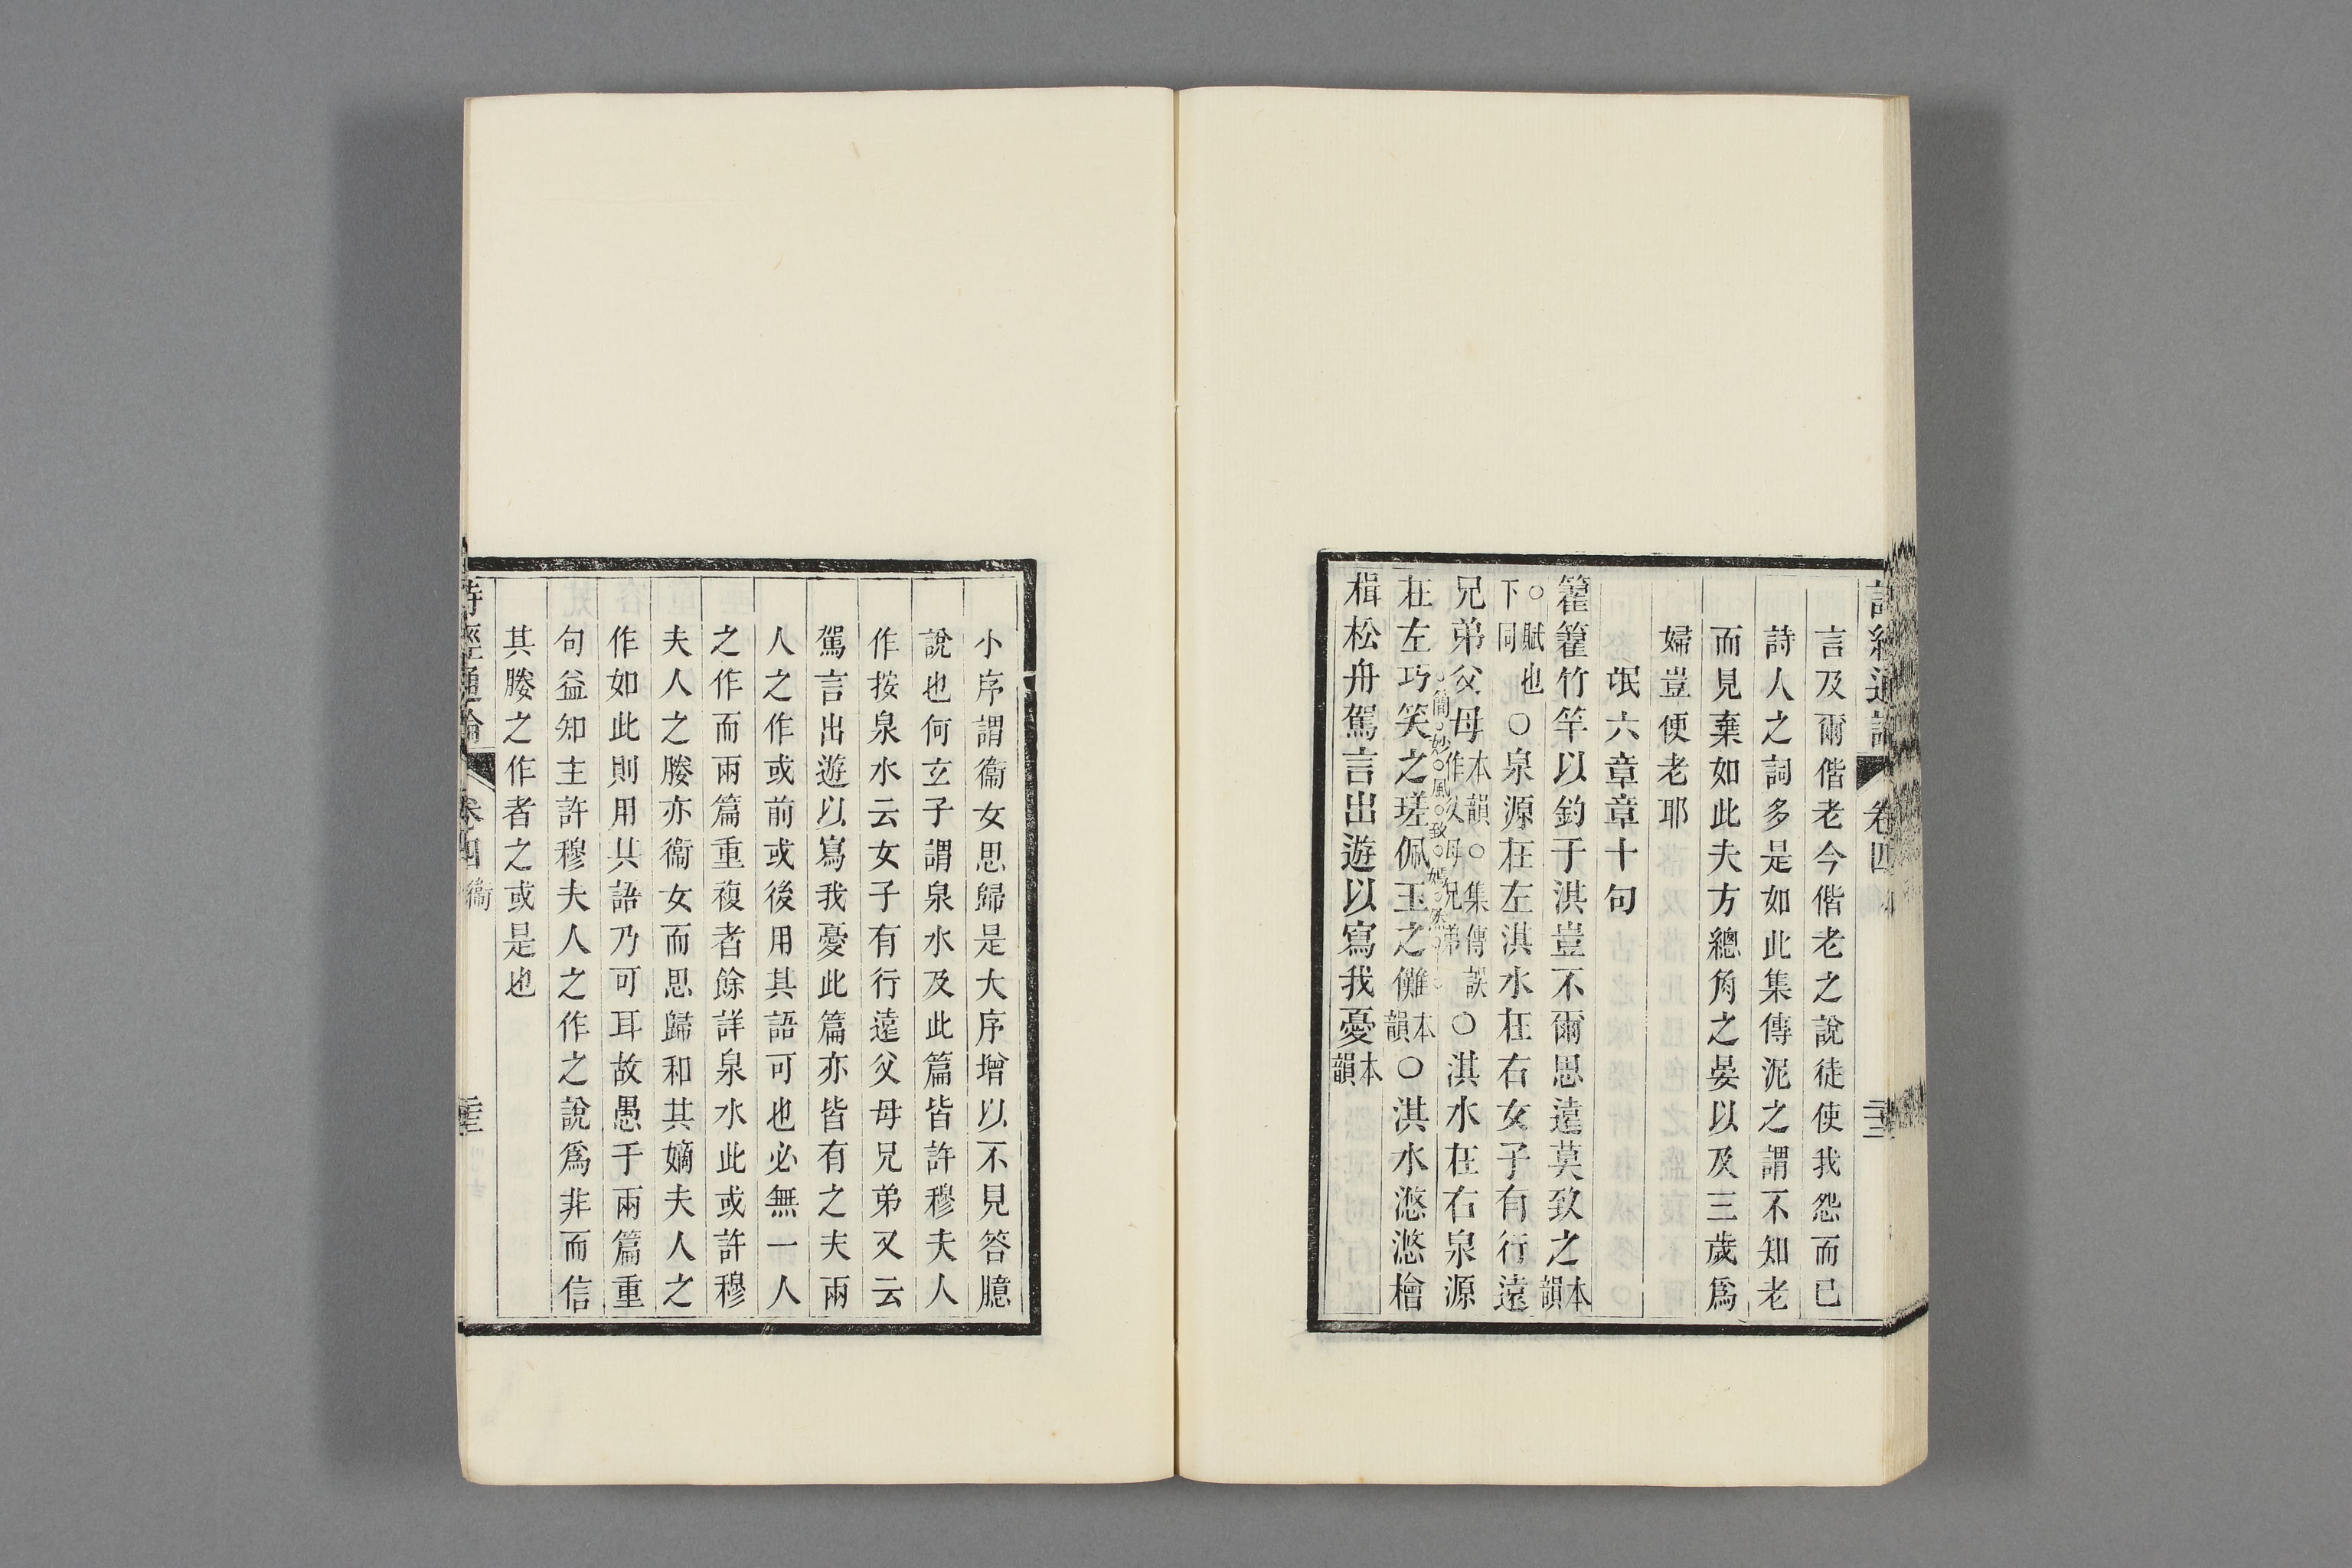 言及爾偕老今偕老之說徒使我怨而已
詩人之詞多是如此集傳泥之謂不知老
而見棄如此夫方總角之晏以及三歲爲
婦豈便老耶
氓六章章十句
籊籊竹竿以釣于淇豈不爾思遠莫致之本韻
○賦也下同○泉源在左淇水在右女子有行遠
兄弟父母本韻○集傳誤作父母兄弟○淇水在右泉源
簡妙風致嫣然
在左巧笑之瑳佩玉之儺本韻○淇水滺滺檜
楫松舟駕言出遊以寫我憂本韻
小序謂衞女思歸是大序增以不見答臆
說也何玄子謂泉水及此篇皆許穆夫人
作按泉水云女子有行遠父母兄弟又云
駕言出遊以寫我憂此篇亦皆有之夫兩
人之作或前或後用其語可也必無一人
之作而兩篇重複者餘詳泉水此或許穆
夫人之媵亦衞女而思歸和其嫡夫人之
作如此則用其語乃可耳故愚于兩篇重
句益知主許穆夫人之作之說爲非而信
其媵之作者之或是也
詩經通論 卷四 衞